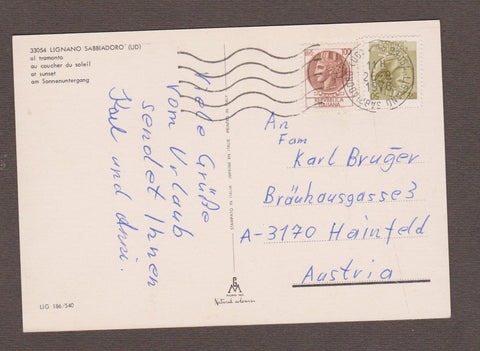 33054 LIGNANO SABBIADORO (UD)
al tramonto
au coucher du soleil
at sunset
am Sonnenuntergang
Viele Grüße
vom Urlaub
sendet Ihnen
Karl und Anni.
LIG 186/540
100
REPUBBLICA
ITALIANA
1978
An
Fam
Karl Bruğer
Bräuhausgasse 3
A-3170 Hainfeld
Austria